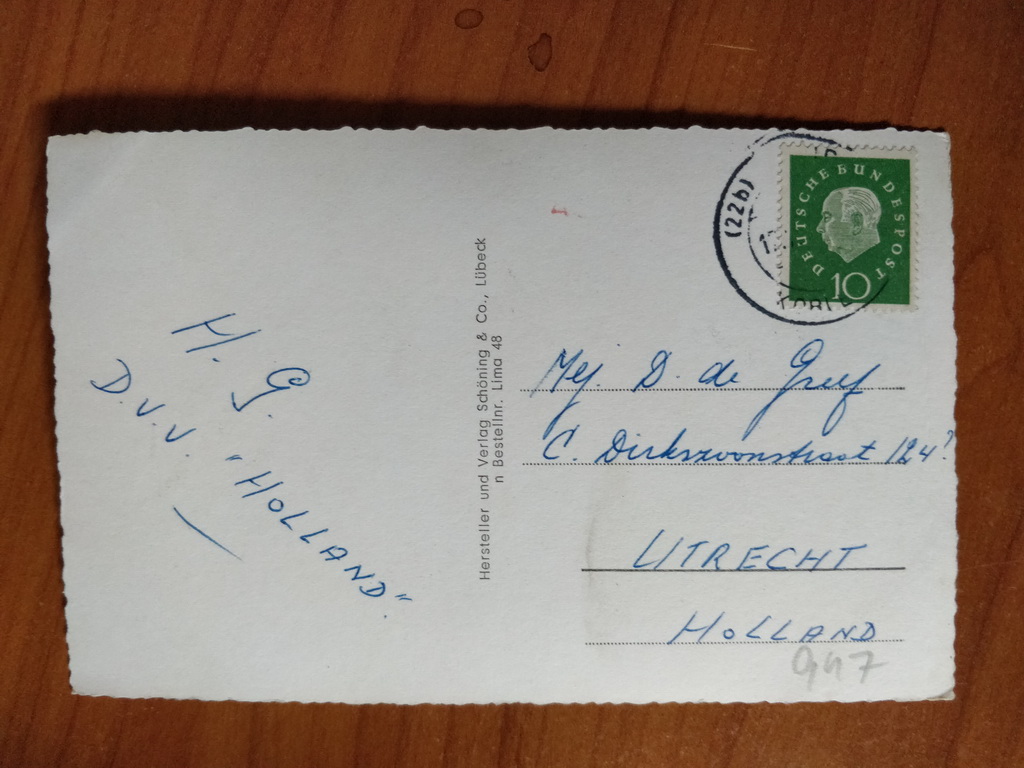 H. G.
D.V.V. "HOLLAND".
Hersteller und Verlag Schöning & Co., Lübeck
n Bestellnr. Lima 48
(22b)
DEUTSCHE BUNDESPOST
10
Mej. D. de Greef
C. Dirkszoonstraat 124?
UTRECHT
HOLLAND
947